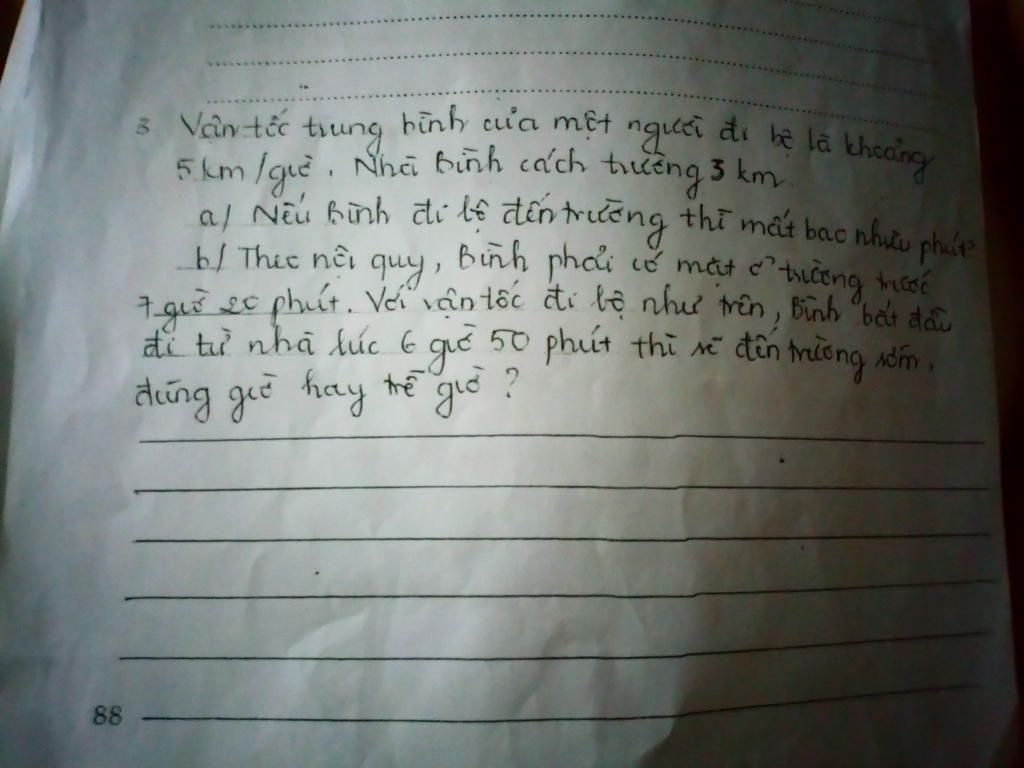 3 Vận tốc trung bình của một người đi bộ là khoảng
5 km/giờ. Nhà Bình cách trường 3 km.
a/ Nếu Bình đi bộ đến trường thì mất bao nhiêu phút?
b/ Theo nội quy, Bình phải có mặt ở trường trước
7 giờ 20 phút. Với vận tốc đi bộ như trên, Bình bắt đầu
đi từ nhà lúc 6 giờ 50 phút thì sẽ đến trường sớm,
đúng giờ hay trễ giờ ?
88